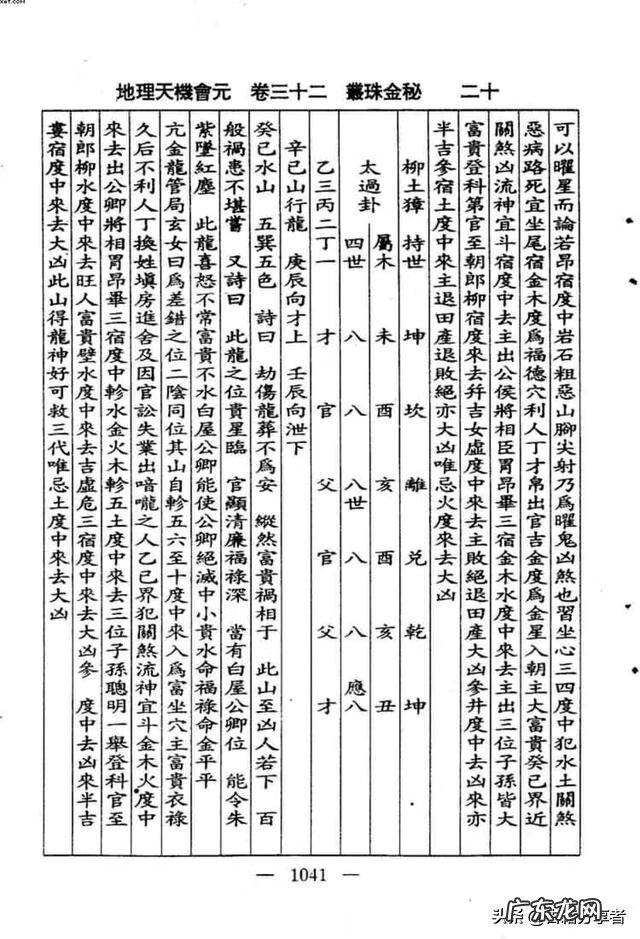 地理天機會元　卷三十二　叢珠金秘　二十
可以曜星而論若昂宿度中岩石粗惡山腳尖射乃爲曜鬼凶煞也習坐心三四度中犯水土關煞
惡病路死宜坐尾宿金木度爲福德穴利人丁才帛出官吉金度爲金星入朝主大富貴癸己界近
關煞凶流神宜斗宿度中去主出公侯將相臣胃昂畢三宿金木水度中來去主出三位子孫皆大
富貴登科第官至朝郎柳宿度來去幷吉女虛度中來去主敗絕退田產大凶參井度中去凶來亦
半吉參宿土度中來主退田產退敗絕亦大凶唯忌火度來去大凶
柳土獐　持世　坤　坎　離　兑　乾　坤
屬木　未　酉　亥　酉　亥　丑
太過卦　四世　八　八　八世　八　八　應八
乙三丙二丁一　才　官　父　官　父　才
辛己山行龍　庚辰向才上　壬辰向泄下
癸已水山　五巽五色　詩曰　劫傷龍葬不爲安　縱然富貴禍相于　此山至凶人若下　百
般禍患不堪嘗　又詩曰　此龍之位貴星臨　官顯清廉福祿深　當有白屋公卿位　能令朱
紫墜紅塵　此龍喜怒不常富貴不水白屋公卿能使公卿絕滅中小貴水命福祿命金平平
亢金龍管局玄女曰爲差錯之位二陰同位其山自軫五六至十度中來入爲富坐穴主富貴衣祿
久后不利人丁換姓塡房進舍及因官訟失業出喑嚨之人乙已界犯關煞流神宜斗金木火度中
來去出公卿將相胃昂畢三宿度中軫水金火木軫五土度中來去三位子孫聰明一舉登科官至
朝郎柳水度中來去旺人富貴壁水度中來去吉虛危三宿度中來去大凶參　度中去凶來半吉
婁宿度中來去大凶此山得龍神好可救三代唯忌土度中來去大凶
— 1041 —
广东龙网